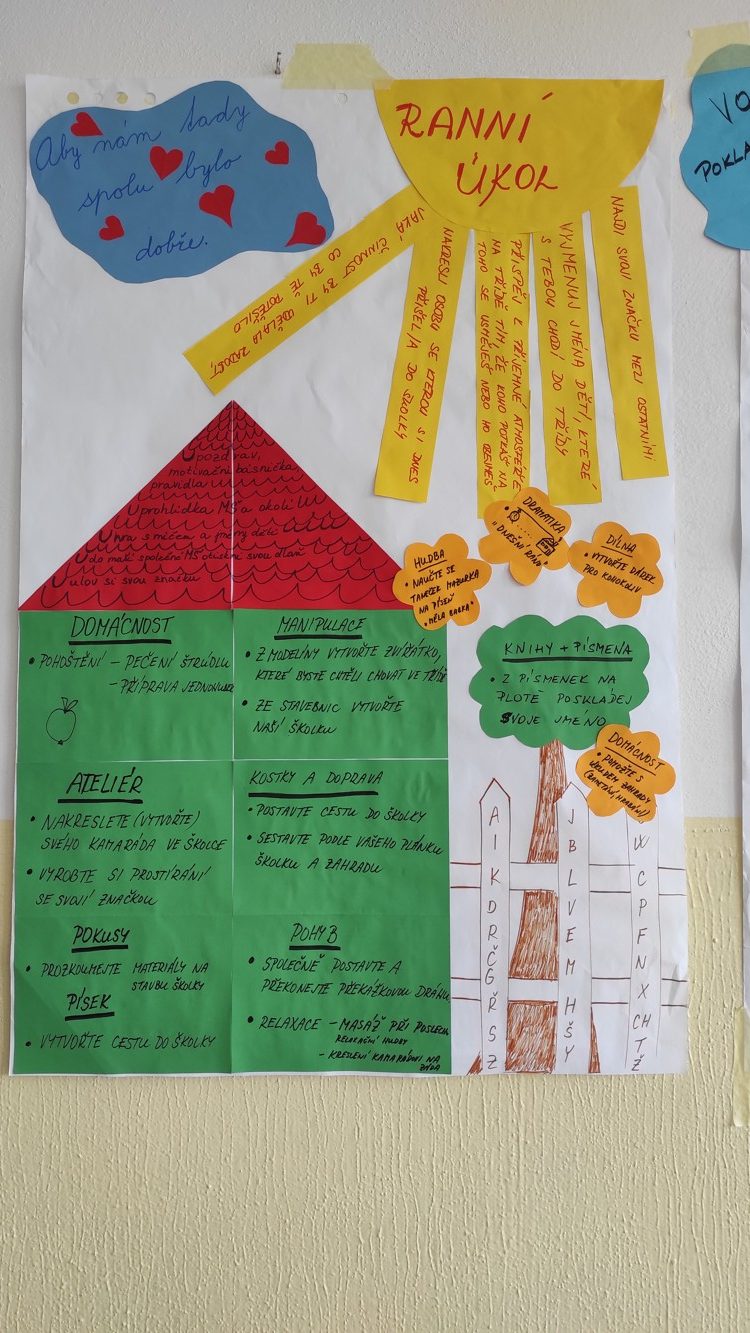 Aby nám tady
spolu bylo
dobře.
RANNÍ
ÚKOL
JAKÁ ČINNOST BY TI UDĚLALA RADOST,
CO BY TĚ POTĚŠILO
NAKRESLI OSOBU SE KTEROU SI DNES
PŘIŠEL/A DO ŠKOLKY
PŘISPĚJ K PŘÍJEMNÉ ATMOSFÉŘE
NA TŘÍDĚ TÍM, ŽE KOHO POTKÁŠ NA
TOHO SE USMĚJEŠ NEBO HO OBEJMEŠ
VYJMENUJ JMÉNA DĚTÍ, KTERÉ
S TEBOU CHODÍ DO TŘÍDY
NAJDI SVOJI ZNAČKU MEZI OSTATNÍMI
U pozdrav,
motivační básnička,
pravidla
U prohlídka MŠ a okolí
U hra s míčem a jmény dětí
U do makú společné MŠ otiskni svou dlaň
U ulov si svou značku
HUDBA
• NAUČTE SE
TANEČEK MAZURKA
NA PÍSEŇ
"MĚLA BABKA"
DRAMATIKA
"DNEŠNÍ RÁNO"
DÍLNA
• VYTVOŘTE DÁREK
PRO KOHOKOLIV
DOMÁCNOST
• POHOŠTĚNÍ – PEČENÍ ŠTRŮDLU
– PŘÍPRAVA JEDNOHUBEK
MANIPULACE
• Z MODELÍNY VYTVOŘTE ZVÍŘÁTKO,
KTERÉ BYSTE CHTĚLI CHOVAT VE TŘÍDĚ
• ZE STAVEBNIC VYTVOŘTE
NAŠÍ ŠKOLKU
KNIHY + PÍSMENA
• Z PÍSMENEK NA
PLOTĚ POSKLÁDEJ
SVOJE JMÉNO
DOMÁCNOST
• POMOZTE S
ÚKLIDEM ZAHRADY
(ZAMETÁNÍ, HRABÁNÍ)
ATELIÉR
• NAKRESLETE (VYTVOŘTE)
SVÉHO KAMARÁDA VE ŠKOLCE
• VYROBTE SI PROSTÍRÁNÍ
SE SVOJÍ ZNAČKOU
KOSTKY A DOPRAVA
• POSTAVTE CESTU DO ŠKOLKY
• SESTAVTE PODLE VAŠEHO PLÁNKU
ŠKOLKU A ZAHRADU
POKUSY
• PROZKOUMEJTE MATERIÁLY NA
STAVBU ŠKOLKY
PÍSEK
• VYTVOŘTE CESTU DO ŠKOLKY
POHYB
• SPOLEČNĚ POSTAVTE A
PŘEKONEJTE PŘEKÁŽKOVOU DRÁHU
• RELAXACE – MASÁŽ PŘI POSLECHU
RELAXAČNÍ HUDBY
– KRESLENÍ KAMARÁDOVI NA
ZÁDA
A
I
K
D
R
Č
G
Ř
S
Z
J
B
L
V
E
M
H
Š
Y
W
C
P
F
N
X
CH
T
Ž
VO
POKLA